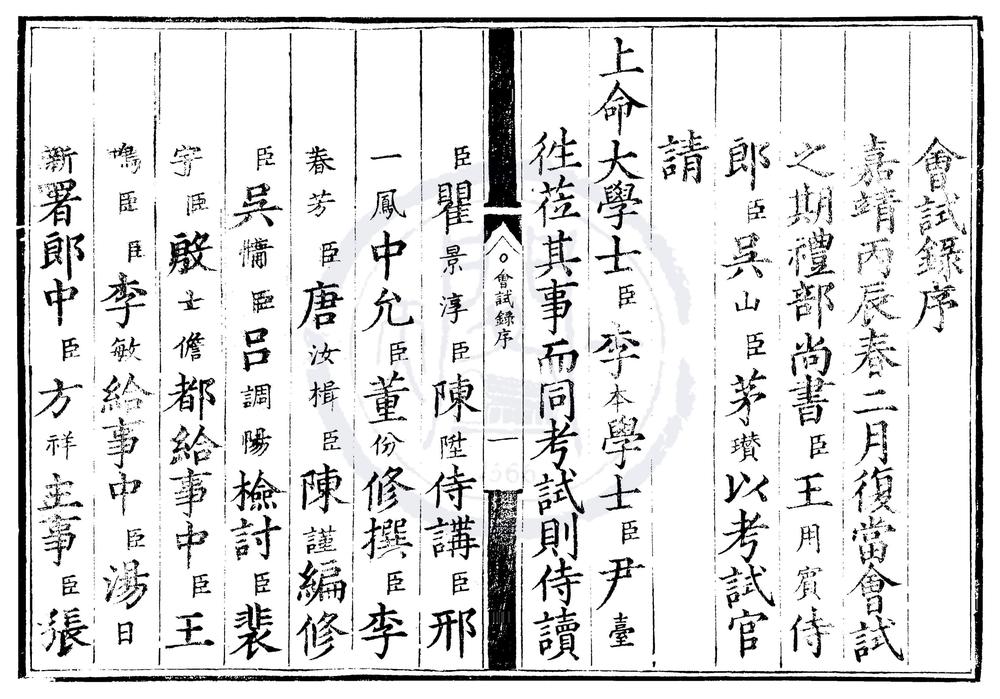 會試錄序
嘉靖丙辰春二月復當會試
之期禮部尚書臣王用賔侍
郎臣吳山臣茅瓚以考試官
請
上命大學士臣李本學士臣尹臺
徃莅其事而同考試則侍讀
會試錄序
一
臣瞿景淳臣陳陞侍講臣邢
一鳳中允臣董份修撰臣李
春芳臣唐汝楫臣陳謹編修
臣吳臣呂調陽檢討臣裴
宇臣殷士儋都給事中臣王
鳴臣臣李敏給事中臣湯日
新署郎中臣方祥主事臣張